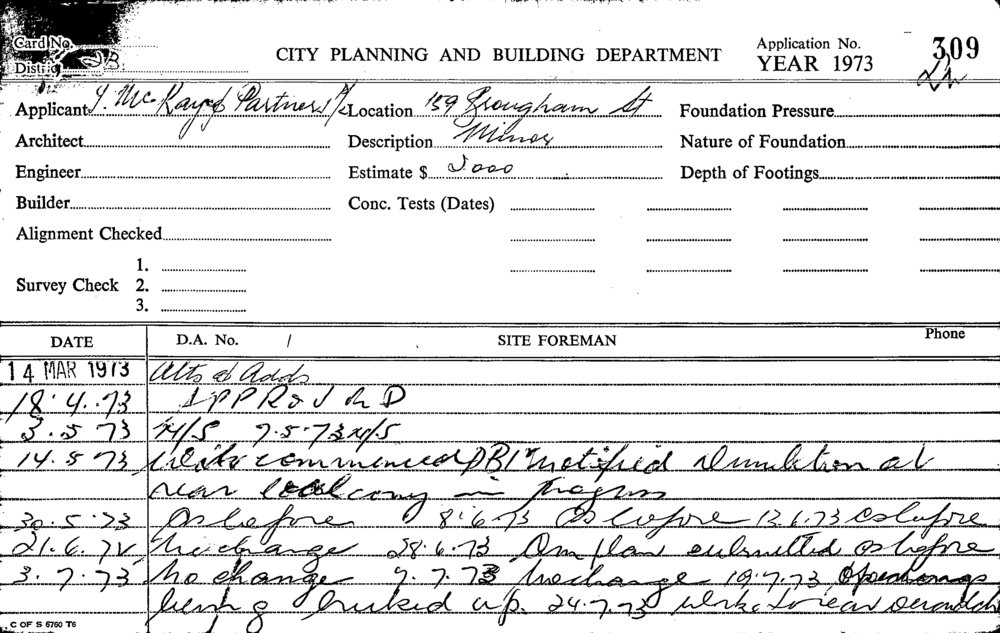 Card No. CITY PLANNING AND BUILDING DEPARTMENT Application No. 309
District 2B. YEAR 1973
Applicant J. McKay & Partners P/L Location 159 Brougham St Foundation Pressure
Architect Description Minor Nature of Foundation
Engineer Estimate $ 5000 Depth of Footings
Builder Conc. Tests (Dates)
Alignment Checked
1.
Survey Check 2.
3.
DATE D.A. No. / SITE FOREMAN Phone
14 MAR 1973 Alts & Adds
18.4.73 APPROVED
3.5.73 N/S 7.5.73 N/S
14.5.73 Work commenced DBI notified demolition at
rear balcony in progress
30.5.73 As before 8.6.73 As before 12.6.73 as before
21.6.72 No change 28.6.73 Am plan submitted as before
3.7.73 No change 9.7.73 No change 19.7.73 Openings
being bricked up. 24.7.73 work to rear verandah
C OF S 6760 T6